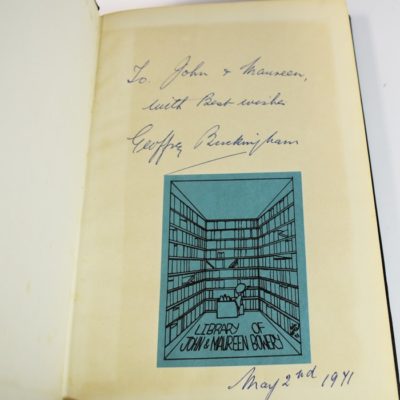 To John & Maureen,
with Best wishes
Geoffrey Buckingham
LIBRARY OF
JOHN & MAUREEN BOWERY
May 2nd 1971